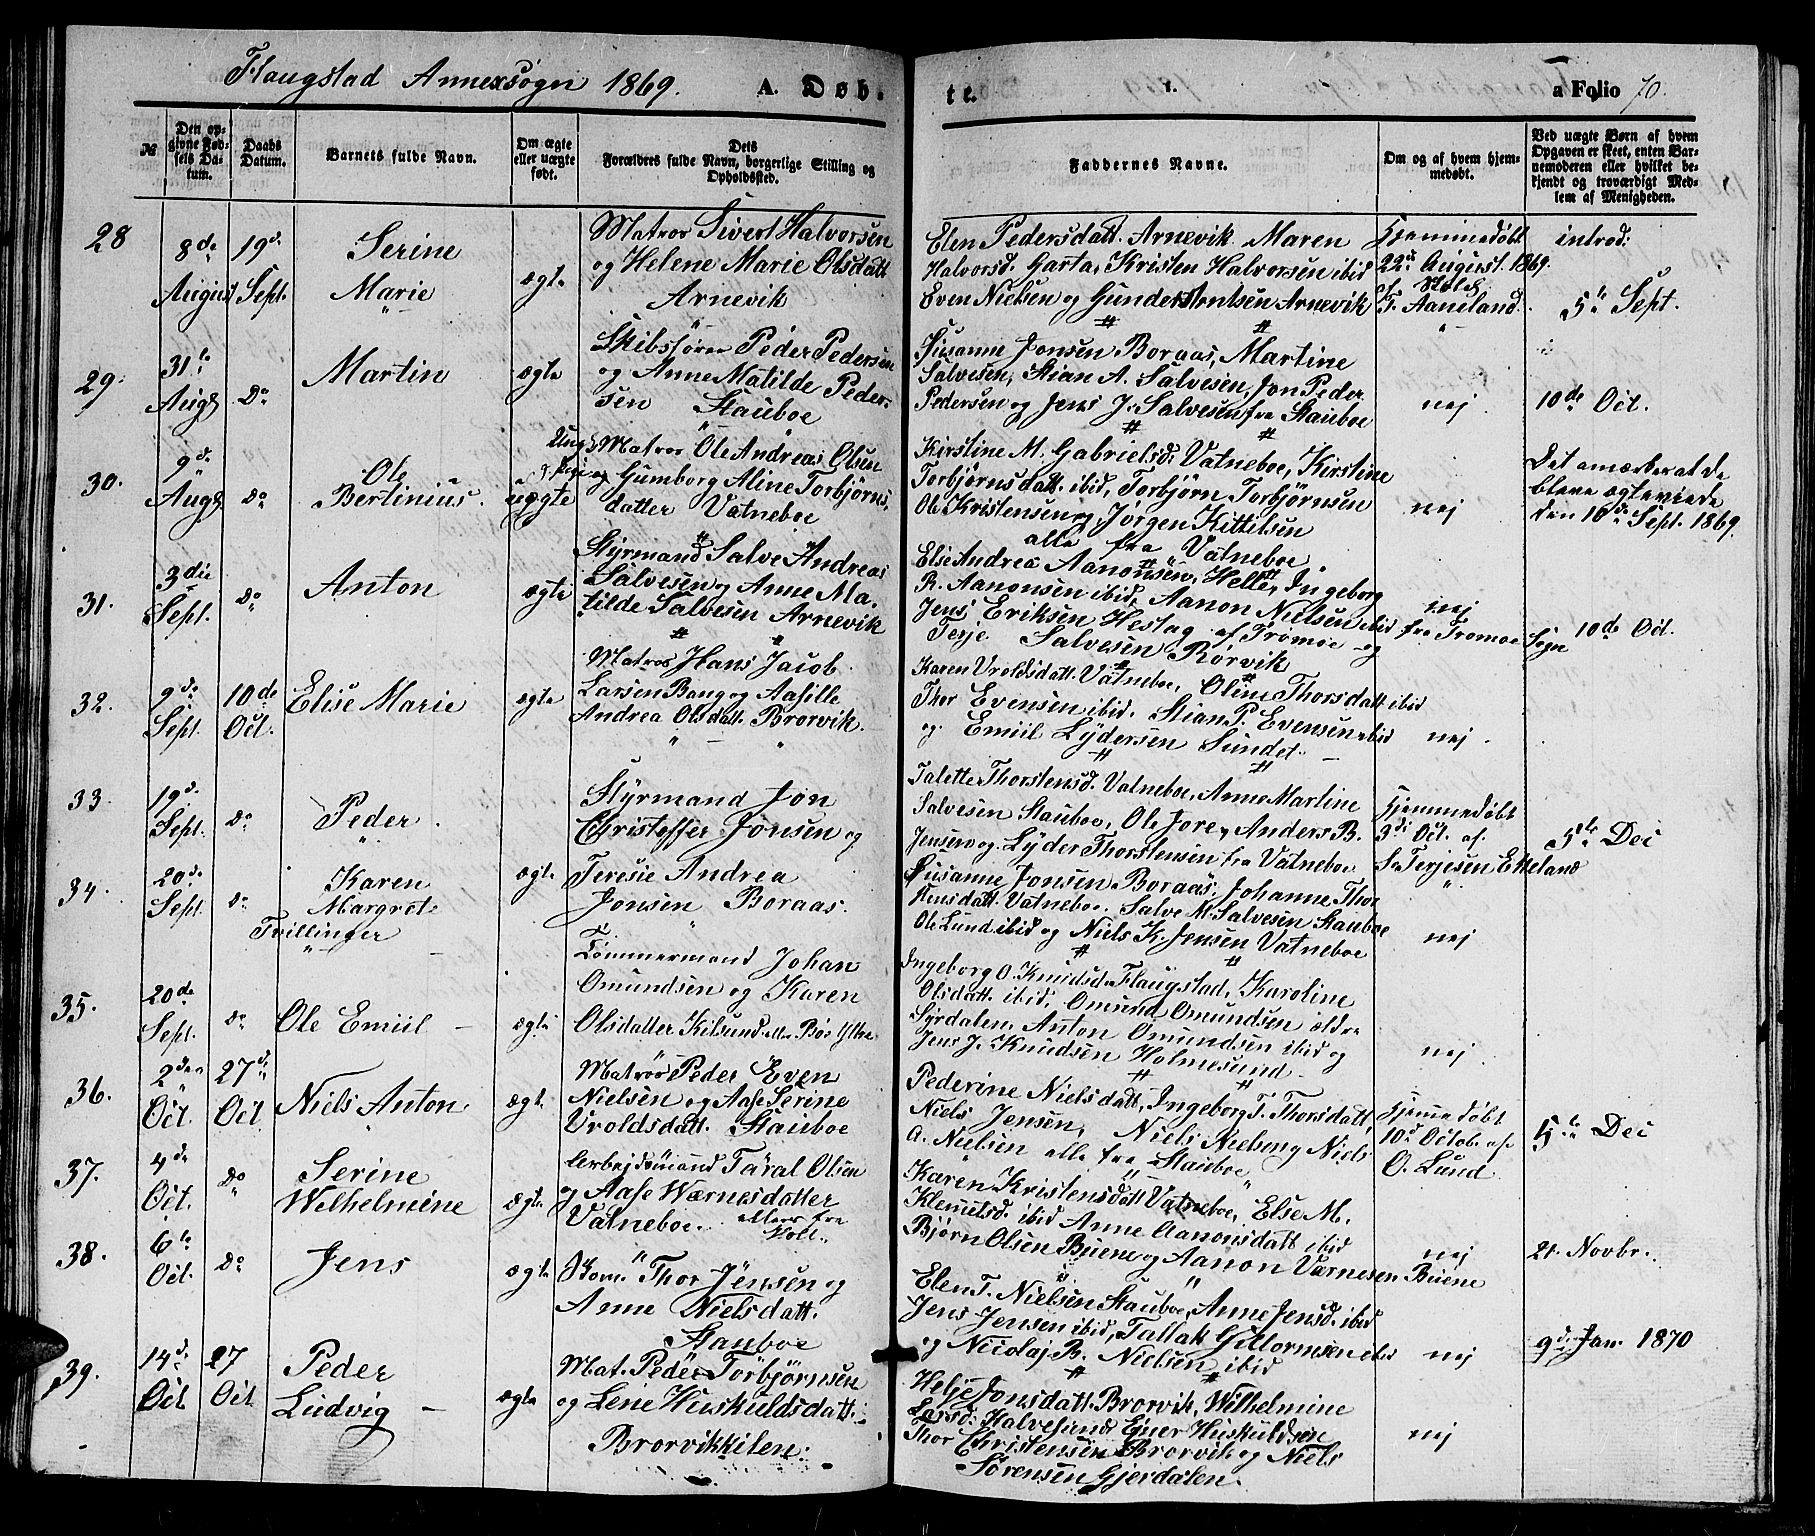 Flaugstad Annexsogn 1869. A. Døb-
№
Den op-
givne Fød-
sels Da-
tum.
Daabs
Datum.
Barnets fulde Navn.
Om ægte
eller uægte
født.
Dets
Forældres fulde Navn, borgerlige Stilling og
Opholdssted.
28
8de
August
19d.
Sept.
Serine
Marie
ægte
Matros Sivert Halvorsen
og Helene Marie Olsdatt
Arnevik
29.
31te
Aug
Do
Martin
ægte
Skibsfører Peder Pedersen
og Anne Matilde Peder-
sen Stauboe
30.
9de
Aug
do
Ole
Bertinius.
Ungk.
uægte
Matros Ole Andreas Olsen
og Gumborg Aline Torbjørns-
datter Vatneboe
31.
3die
Sept.
do
Anton
ægte
Styrmand Salve Andreas
Salvesen og Anne Ma-
tilde Salvesen Arnevik
32.
9de
Sept.
10de
Oct.
Elise Marie
ægte
Matros Hans Jacob
Larsen Baug og Aasille
Andrea Olsdatt. Brorvik.
33
19d.
Sept.
do
Peder.
34.
20de
Sept.
do
Karen
Margrete
Tvillinger
ægte
Styrmand Jon
Christoffer Jonsen og
Teresie Andrea
Jonsen Boraas.
35.
20de
Sept.
do
Ole Emiil
ægte
Tømmermand Johan
Omundsen og Karen
Olsdatter Kilsund
36.
2den
Oct.
27d.
Oct
Niels Anton
ægt.
Matros Peder Even
Nielsen og Aase Serine
Vroldsdatt. Stauboe
37.
4de
Oct.
Do
Serine
Wilhelmine
ægte
Arbejdsmand Taral Olsen
og Aase Wærnesdatter
Vatneboe.
38.
6te
Oct.
Do
Jens
ægte
Thor Jensen og
Anne Nielsdatt.
Stauboe
39.
14d.
Oct
27
Oct
Peder
Ludvig
ægte
Mat. Peder Torbjørnsen
og Lene Huskuldsdatt.
Brorvikkilen.
te. 1. a Folio 70.
Faddernes Navne.
Om og af hvem hjem-
medøbt.
Ved uægte Børn af hvem
Opgaven er skeet, enten Bar-
nemoderen eller hvilket be-
kjendt og troværdigt Med-
lem af Menigheden.
Elen Pedersdatt. Arnevik. Maren
Halvorsd. Garta, Kristen Halvorsen ibid
Even Nielsen og Gunder Arntsen Arnevik
Hjemmedøbt
22de August 1869.
af
F. Aaneland.
introd:
5te Sept.
Susanne Jonsen Boraas, Martine
Salvesen, Stian A. Salvesen, Jon Peder
Pedersen og Jens J. Salvesen fra Stauboe
nej
10de Oct.
Kirstine M. Gabrielsd. Vatneboe, Kirstine
Torbjørnsdatt. ibid, Torbjørn Torbjørnsen
Ole Kristensen og Jørgen Kittilsen
alle fra Vatneboe
nej
Det anmærkes at de
bleve ægteviede
den 10de Sept. 1869.
Else Andrea Aanonsen, Helle, Ingeborg
R. Aanonsen ibid, Aanon Nielsen ibid
Jens Eriksen Hestag af Tromøe og
Terje Salvesen Rørvik
nej
fra Tromøe Sogn
10de Oct.
Karen Vroldsdatt. Vatneboe, Oline Thorsdatt ibid
Thor Evensen ibid. Stian P. Evensen ibid
og Emiil Lydersen Sundet.
nej.
Talette Thorstensd. Vatneboe, Anne Martine
Salvesen Stauboe, Ole Jore, Anders B.
Jensen og Lyder Thorstensen fra Vatneboe
Hjemmedøbt
3di Oct. af
S. Terjesen Ekeland
5te Dec
Susanne Jonsen Boraas, Johanne Thor
stensdatt. Vatneboe. Salve M. Salvesen Stauboe
Ole Lund ibid og Niels K. Jensen Vatneboe
nej
Ingeborg O. Knudsd. Flaugstad, Karoline
Olsdatt. ibid, Omund Omundsen ældre
Syrdalen, Anton Omundsen ibid og
Jens J. Knudsen Holmesund.
nej.
Pederine Nielsdatt, Ingeborg T. Thorsdatt,
Niels Jensen, Niels Nielsen og Niels
A. Nielsen alle fra Stauboe
Hjemmedøbt
10d Octob. af
O. Lund
5te Dec
Karen Kristensdatt Vatneboe, Else M.
Klemetsd. ibid Anne Aanonsdatt ibid
Bjørn Olsen Buene og Aanon Værnesen Buene
nej
21. Novbr.
Elen T. Nielsen Stauboe, Anne Jensd. ibid
Jens Jensen ibid, Tallak Guttormsen ibid
og Nicolaj B. Nielsen ibid
nej
9d. Jan. 1870
Helje Jonsdatt. Brorvik, Wilhelmine
Larsd. Halvesund, Ejner Huskuldsen
Thor Christensen Brorvik og Niels
Sørensen Gjerdalen.
nej